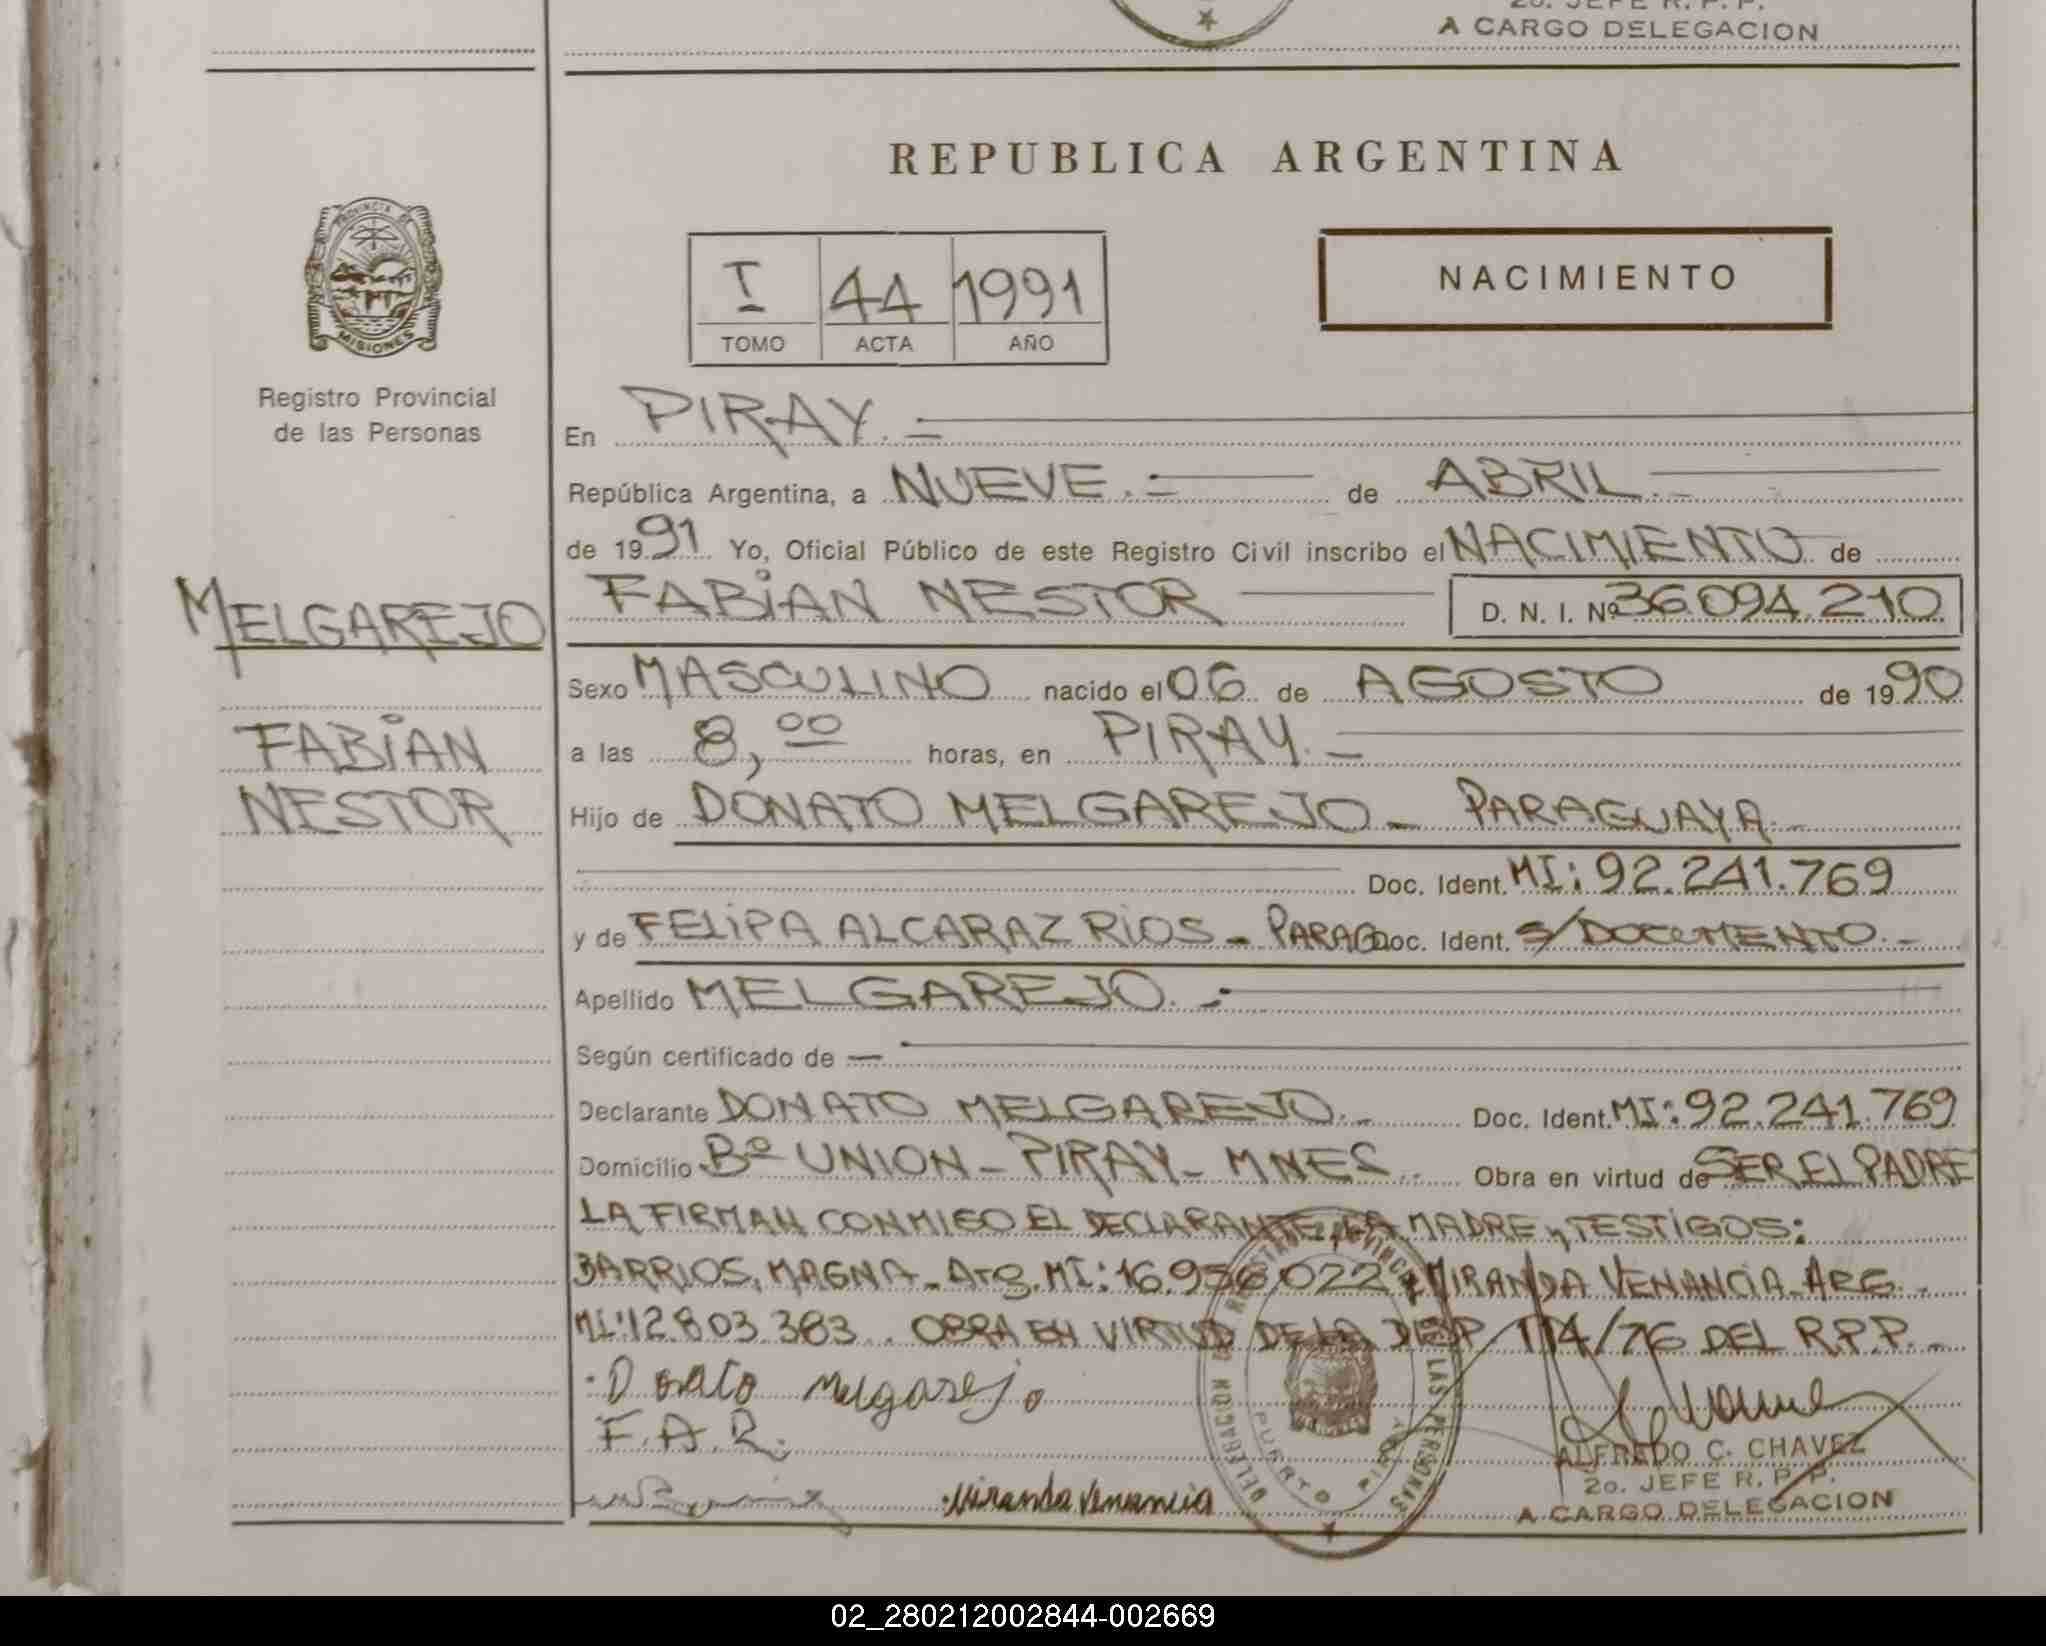 2o. JEFE R. P. P.
A CARGO DELEGACION
REPUBLICA ARGENTINA
PROVINCIA DE
MISIONES
Registro Provincial
de las Personas
I 44 1991
TOMO ACTA AÑO
NACIMIENTO
MELGAREJO
FABIAN
NESTOR
En PIRAY. =
República Argentina, a NUEVE. = de ABRIL. -
de 1991 Yo, Oficial Público de este Registro Civil inscribo el NACIMIENTO de
FABIAN NESTOR D. N. I. Nº 36.094.210
Sexo MASCULINO nacido el 06 de AGOSTO de 1990
a las 8,00 horas, en PIRAY. -
Hijo de DONATO MELGAREJO - PARAGUAYA. -
Doc. Ident. MI: 92.241.769
y de FELIPA ALCARAZ RIOS - PARAG Doc. Ident. S/DOCUMENTO. -
Apellido MELGAREJO. -
Según certificado de —
Declarante DONATO MELGAREJO. - Doc. Ident. MI: 92.241.769
Domicilio Bº UNION - PIRAY - MNES. Obra en virtud de SER EL PADRE
LA FIRMAN CONMIGO EL DECLARANTE, LA MADRE y TESTIGOS:
BARRIOS, MAGNA - Arg. MI: 16.956.022 y MIRANDA VENANCIA - ARG.
MI: 12.803.383. OBRA EN VIRTUD DE LA DISP. 114/76 DEL R.P.P. -
Donato Melgarejo
F. A. R.
Miranda Venancia
DELEGACION DEL REGISTRO PROVINCIAL DE LAS PERSONAS
PUERTO PIRAY
ALFREDO C. CHAVEZ
2o. JEFE R. P. P.
A CARGO DELEGACION
02_280212002844-002669